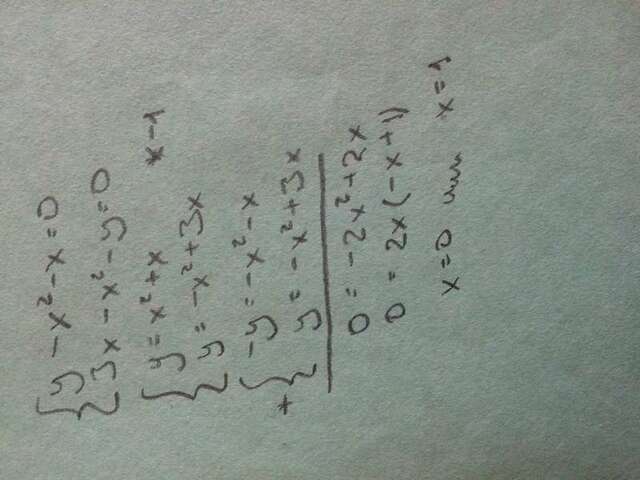 { y - x² - x = 0
{ 3x - x² - y = 0
{ y = x² + x    x - 1
{ y = -x² + 3x
+ { -y = -x² - x
{ y = -x² + 3x
0 = -2x² + 2x
0 = 2x(-x + 1)
x = 0 или x = 1